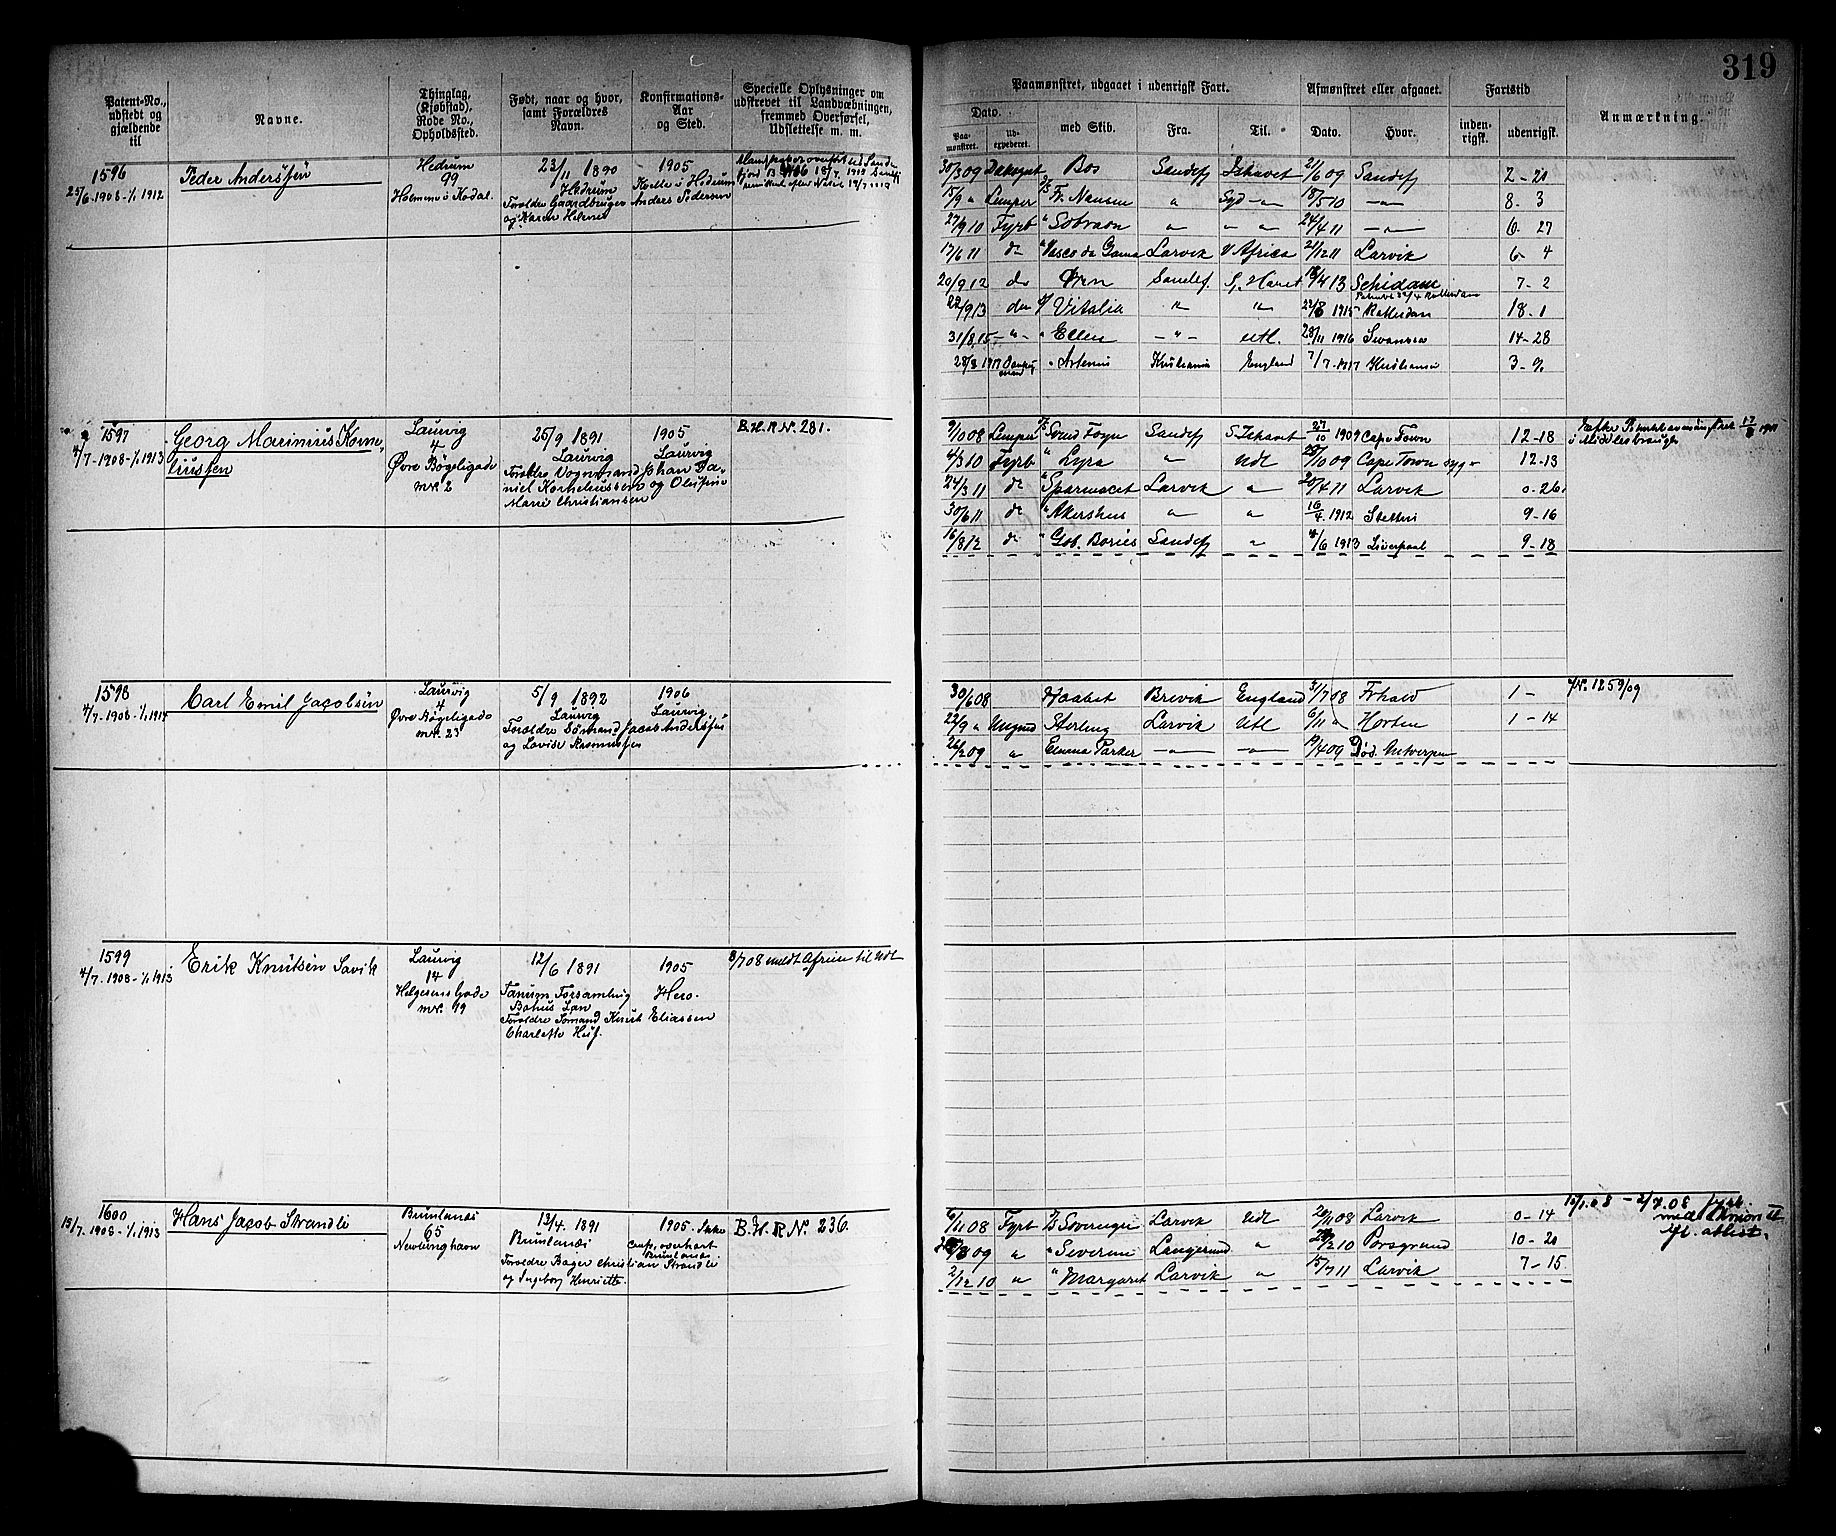 319
Patent-No., udstedt og gjældende til
Navne.
Thinglag, (Kjøbstad), Rode No., Opholdssted.
Født, naar og hvor, samt Forældres Navn.
Konfirmations-Aar og Sted.
Specielle Oplysninger om udskrevet til Landværnet, fremmed Overførsel, Udslettelse m. m.
Paamønstret, udgaaet i udenrigsk Fart.
Afmønstret eller afgaaet.
Fartstid
Anmærkning.
Dato.
Paa-mønstret.
ud-expederet.
med Skib.
Fra.
Til.
Dato.
Hvor.
inden-rigsk.
udenrigsk.
1596
25/6 1908 - 1/1 1912
Peder Anderssen
Hedrum
99
Holmene i Kodal.
23/11 1890
Hedrum
Foroldre Gaardbruger Anders Pedersen
og Karen Helene
1905
Hedrum
30/3 09 Bos Sandefj Ishavet 21/6 09 Sandefj 2 - 20
15/9 " Lemper Fr. Nansen " Syd - " - 18/5 10 - " - 8 - 3
27/9 10 Fyrb " Sobraon " - " - 24/4 11 - " - 6 - 27
17/6 11 do " Vasco da Gama Larvik V Africa 21/12 11 Larvik 6 - 4
20/9 12 do Ørn Sandef. S. Havet 4 13 Schidam 7 - 2
22/9 13 do Vitalia " " 22/8 1915 Rotterdam 18 - 1
31/8 15 - " - " Ellen - " - utl. 28/11 1916 Swansea 14 - 28
28/3 1917 " Artemis Kristiania England 7/7 - 1917 Kristiania 3 - 9
1597
4/7 - 1908 - 1/1 1913
Georg Marinius Korne
liussen
Laurvig
4
Øvre Bøgeligade
mr. 2
25/9 1891
Laurvig
Foroldre Vognmand Johan Da-
niel Korneliussen og Olufine
Marie Christiansen
1905
Laurvig
B.H.R.N. 281.
9/10 08 Lemper Svend Foyn Sandefj S. Ishavet 27/10 1909 Cape Town 12 - 18
4/3 10 Fyrb " Lyra " Udt 10 09 Cape Town syg - 12 - 13
24/3 11 do " Sparmacet Larvik " 20/4 11 Larvik 0 - 26
30/6 11 do " Akershus " " 16/4 1912 Stettin 9 - 16
16/8 12 do " Gob. Bories Sandefj " 4/6 1913 Liverpool 9 - 18
i Middlesbrough
1598
4/7 - 1908 - 1/1 1914
Carl Emil Jacobsen
Laurvig
4
Øvre Bøgeligade
mr. 23
5/9 1892
Laurvig
Foroldre Sømand Jacob Anderssen
og Lovise Rasmussen
1906
Laurvig
30/6 08 Haabet Brevik England 31/7 08 Frhald 1 -
22/9 " Ungmd Sterling Larvik Utl 6/11 " Horten 1 - 14
26/2 09 " Emma Parker - " - - " - 19/4 09 Død. Antwerpen
JN. 1259/09
1599
4/7 - 1908 - 1/1 1913
Erik Knutsen Savik
Laurvig
14
Helgesens Gade
mr. 19
12/6 1891
Tanum Forsamling
Bohus Lan
Foroldre Sømand Knut Eliassen
Charlotte
1905
Hero.
8/7 08 meldt Afreise til Udt
1600
13/7 - 1908 - 1/1 1913
Hans Jacob Strandli
Brunlanes
65
Nevlunghavn
13/4. 1891
Brunlanes
Foroldre Bager Christian Strandli
og Ingeborg Henriette.
1905. Ikke
Brunlanes
B.H.R.N. 236.
6/11 08 Fyrb Sovereign Larvik Udt 20/11 08 Larvik 0 - 14
8 09 " " Severin Langesund " 2 10 Porsgrund 10 - 20
2/12 10 " " Margaret Larvik " 15/7 11 Larvik 7 - 15.